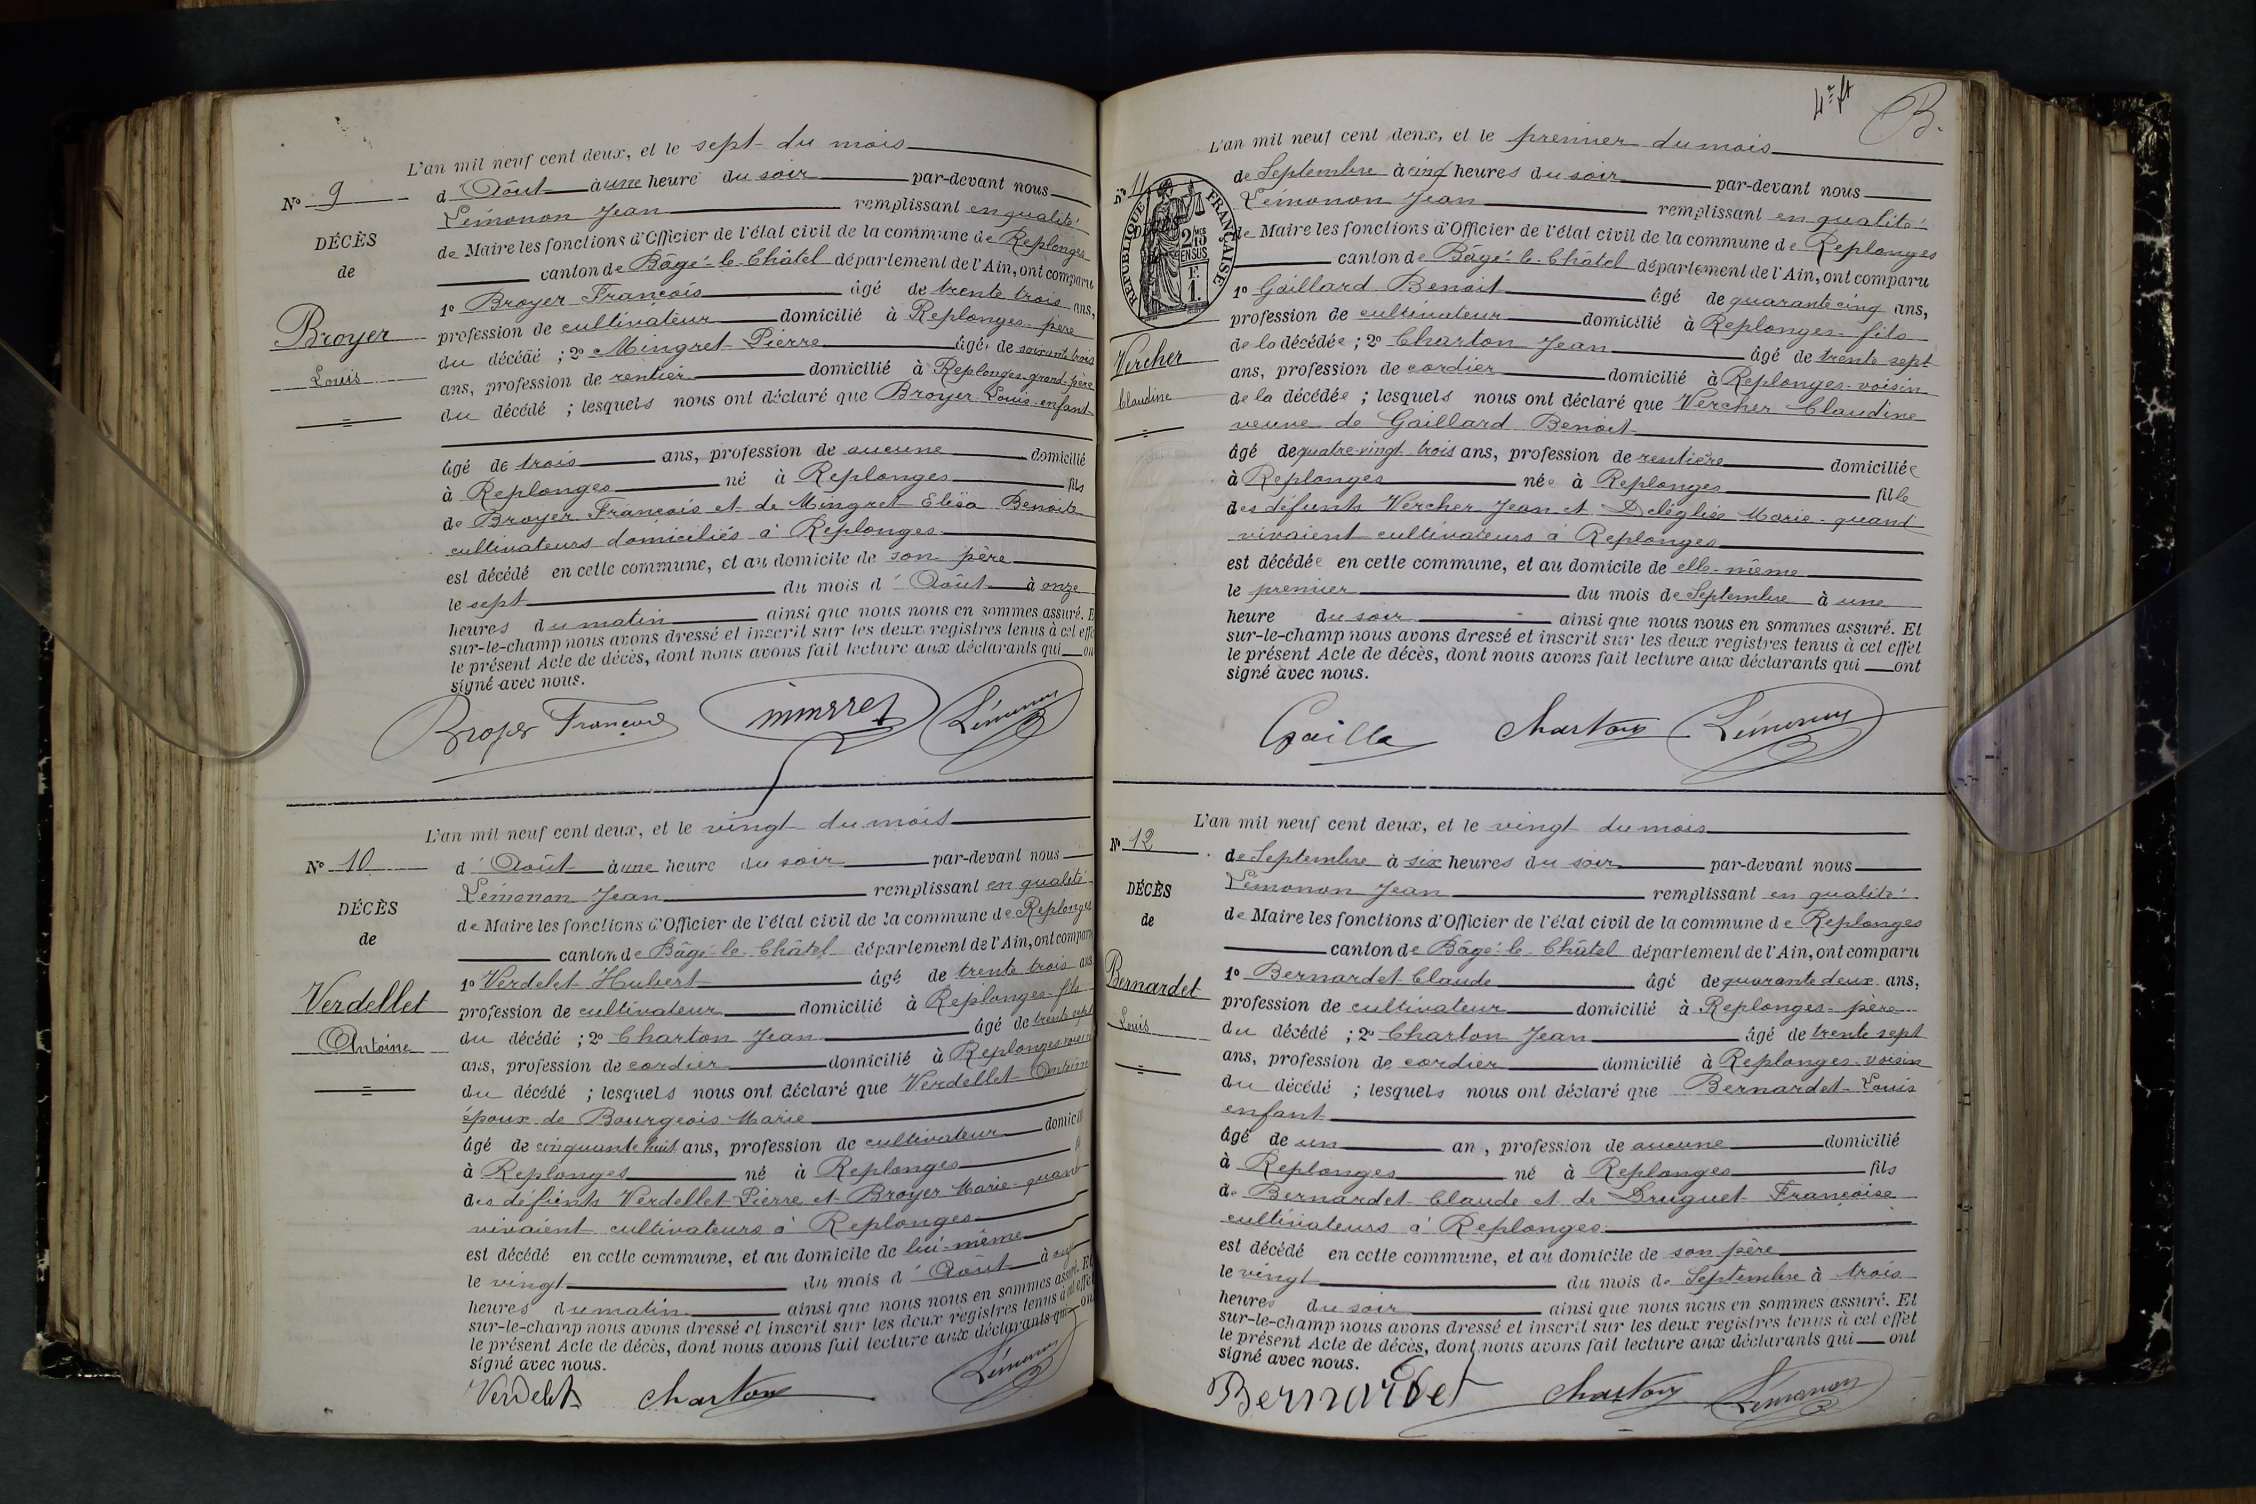 L'an mil neuf cent deux, et le sept du mois
N° 9
d'Août à une heure du soir par-devant nous
Lémonon Jean remplissant en qualité
DÉCÈS
de Maire les fonctions d'Officier de l'état civil de la commune de Replonges
de
canton de Bâgé-le-Châtel département de l'Ain, ont comparu
1° Broyer François âgé de trente trois ans,
Broyer
profession de cultivateur domicilié à Replonges père
du décédé ; 2° Mingret Pierre âgé de soixante trois
Louis
ans, profession de rentier domicilié à Replonges grand-père
du décédé ; lesquels nous ont déclaré que Broyer Louis enfant
âgé de trois ans, profession de aucune domicilié
à Replonges né à Replonges fils
de Broyer François et de Mingret Elisa Benoite
cultivateurs domiciliés à Replonges
est décédé en cette commune, et au domicile de son père
le sept du mois d'Août à onze
heures du matin ainsi que nous nous en sommes assuré. Et
sur-le-champ nous avons dressé et inscrit sur les deux registres tenus à cet effet
le présent Acte de décès, dont nous avons fait lecture aux déclarants qui ont
signé avec nous.
Broyer François Lémonon
L'an mil neuf cent deux, et le vingt du mois
N° 10
d'Août à une heure du soir par-devant nous
Lémonon Jean remplissant en qualité
DÉCÈS
de Maire les fonctions d'Officier de l'état civil de la commune de Replonges
de
canton de Bâgé-le-Châtel département de l'Ain, ont comparu
1° Verdelet Hubert âgé de trente trois ans
Verdellet
profession de cultivateur domicilié à Replonges fils
du décédé ; 2° Charton Jean âgé de trente sept
Antoine
ans, profession de cordier domicilié à Replonges voisin
du décédé ; lesquels nous ont déclaré que Verdellet Antoine
époux de Bourgeois Marie
âgé de cinquante huit ans, profession de cultivateur domicili
à Replonges né à Replonges fi
des défunts Verdellet Pierre et Broyer Marie quand
vivaient cultivateurs à Replonges
est décédé en cette commune, et au domicile de lui-même
le vingt du mois d'Août à
heures du matin ainsi que nous nous en sommes assuré. Et
sur-le-champ nous avons dressé et inscrit sur les deux registres tenus à cet effet
le présent Acte de décès, dont nous avons fait lecture aux déclarants qui ont
signé avec nous.
Verdelet Charton Lémonon
B.
L'an mil neuf cent deux, et le premier du mois
N° 11
de Septembre à cinq heures du soir par-devant nous
Lémonon Jean remplissant en qualité
RÉPUBLIQUE FRANÇAISE
de Maire les fonctions d'Officier de l'état civil de la commune de Replonges
canton de Bâgé-le-Châtel département de l'Ain, ont comparu
1° Gaillard Benoit âgé de quarante cinq ans,
profession de cultivateur domicilié à Replonges fils
Vercher
de la décédée ; 2° Charton Jean âgé de trente sept
ans, profession de cordier domicilié à Replonges voisin
Claudine
de la décédée ; lesquels nous ont déclaré que Vercher Claudine
veuve de Gaillard Benoit
âgé de quatre-vingt trois ans, profession de rentière domiciliée
à Replonges née à Replonges fille
des défunts Vercher Jean et Deléglise Marie quand
vivaient cultivateurs à Replonges
est décédée en cette commune, et au domicile de elle-même
le premier du mois de Septembre à une
heure du soir ainsi que nous nous en sommes assuré. Et
sur-le-champ nous avons dressé et inscrit sur les deux registres tenus à cet effet
le présent Acte de décès, dont nous avons fait lecture aux déclarants qui ont
signé avec nous.
Gailla Charton Lémonon
L'an mil neuf cent deux, et le vingt du mois
N° 12
de Septembre à six heures du soir par-devant nous
Lémonon Jean remplissant en qualité
DÉCÈS
de Maire les fonctions d'Officier de l'état civil de la commune de Replonges
de
canton de Bâgé-le-Châtel département de l'Ain, ont comparu
1° Bernardet Claude âgé de quarante deux ans,
Bernardet
profession de cultivateur domicilié à Replonges père
du décédé ; 2° Charton Jean âgé de trente sept
Louis
ans, profession de cordier domicilié à Replonges voisin
du décédé ; lesquels nous ont déclaré que Bernardet Louis
enfant
âgé de un an, profession de aucune domicilié
à Replonges né à Replonges fils
de Bernardet Claude et de Druguet Françoise
cultivateurs à Replonges
est décédé en cette commune, et au domicile de son père
le vingt du mois de Septembre à trois
heures du soir ainsi que nous nous en sommes assuré. Et
sur-le-champ nous avons dressé et inscrit sur les deux registres tenus à cet effet
le présent Acte de décès, dont nous avons fait lecture aux déclarants qui ont
signé avec nous.
Bernardet Charton Lémonon